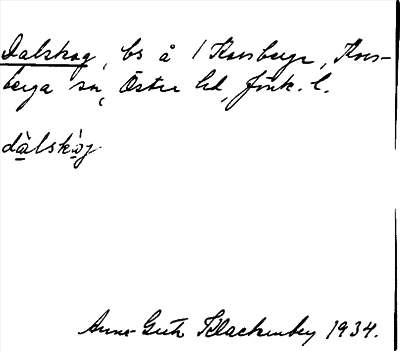 Dalskog, bs å 1 Korsberga, Kors-
berga sn, Östra hd, Jönk. l.
dàlskóg.
Anna-Greta Klackenberg 1934.